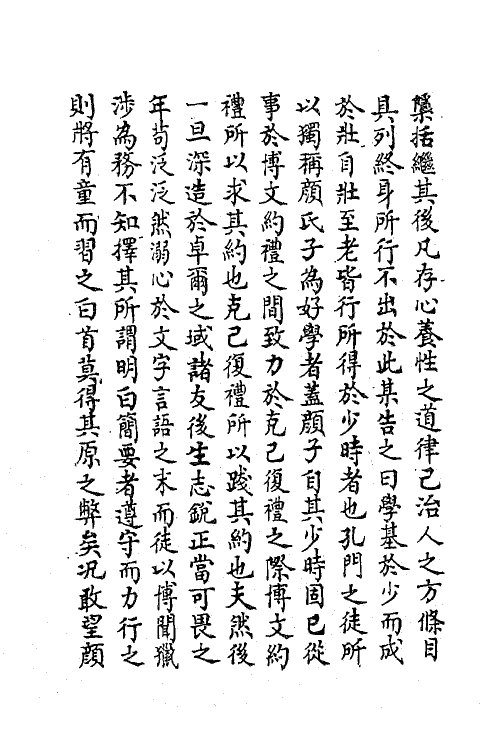 檃括繼其後凡存心養性之道律己治人之方條目
具列終身所行不出於此某告之曰學基於少而成
於壯自壯至老皆行所得於少時者也孔門之徒所
以獨稱顔氏子為好學者蓋顔子自其少時固已從
事於博文約禮之間致力於克己復禮之際博文約
禮所以求其約也克己復禮所以踐其約也夫然後
一旦深造於卓爾之域諸友後生志銳正當可畏之
年苟泛泛然溺心於文字言語之末而徒以博聞獵
涉為務不知擇其所謂明白簡要者遵守而力行之
則將有童而習之白首莫得其原之弊矣况敢望顔